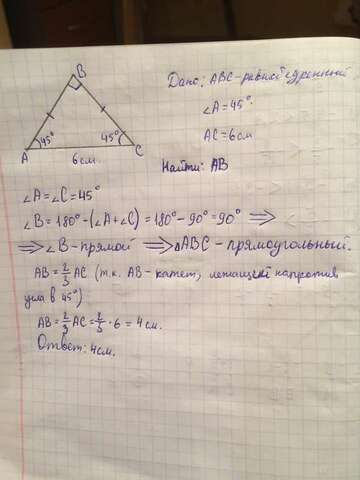 B
Дано: ABC-равнобедренный
∠A=45°
45° 45°
AC=6см
A 6см. C
Найти: AB
∠A=∠C=45°
∠B=180°-(∠A+∠C)=180°-90°=90° ⟹
⟹∠B-прямой ⟹ △ABC-прямоугольный.
AB=2/3 AC (т.к. AB-катет, лежащий напротив
угла в 45°)
AB=2/3 AC=2/3·6=4см.
Ответ: 4см.